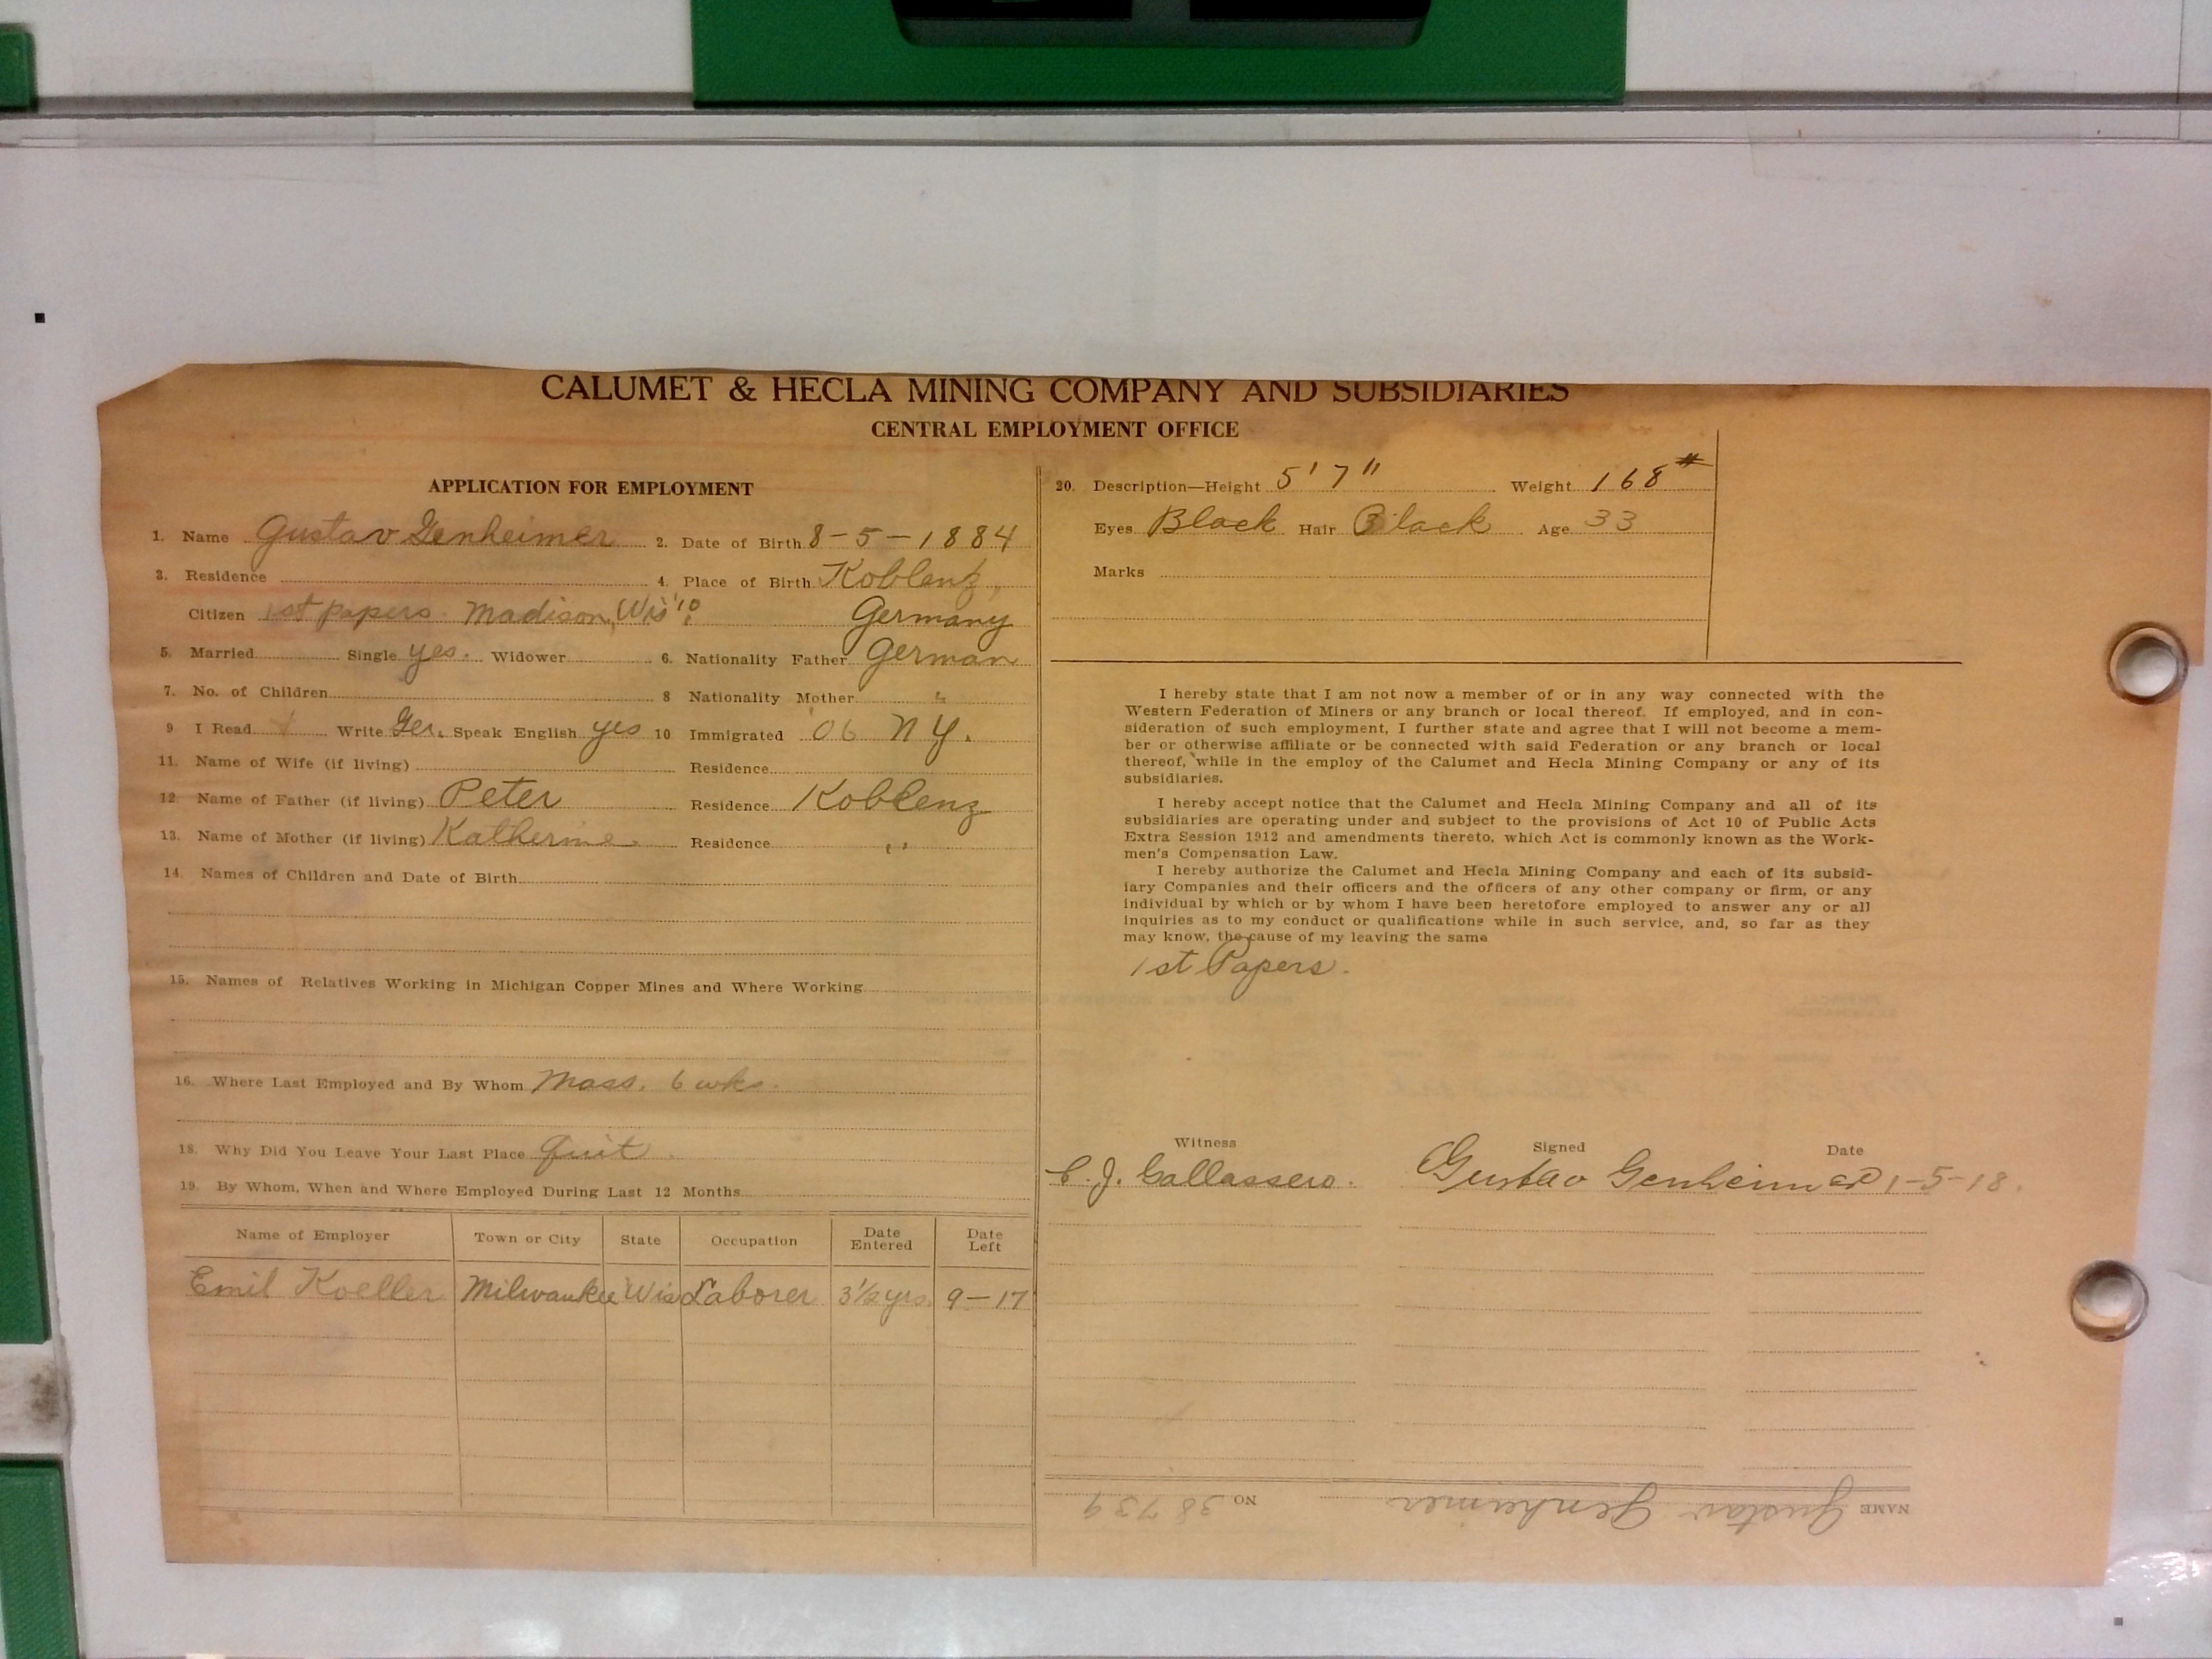 CALUMET & HECLA MINING COMPANY AND SUBSIDIARIES
CENTRAL EMPLOYMENT OFFICE
APPLICATION FOR EMPLOYMENT
1. Name Gustav Genheimer 2. Date of Birth 8-5-1884
3. Residence 4. Place of Birth Koblenz,
Citizen 1st papers. Madison, Wis '10 Germany
5. Married Single yes. Widower 6. Nationality Father German
7. No. of Children 8 Nationality Mother "
9 I Read Write Ger. Speak English yes 10 Immigrated '06 N Y.
11. Name of Wife (if living) Residence
12. Name of Father (if living) Peter Residence Koblenz
13. Name of Mother (if living) Katherine Residence "
14. Names of Children and Date of Birth
15. Names of Relatives Working in Michigan Copper Mines and Where Working
16. Where Last Employed and By Whom Mass. 6 wks.
18. Why Did You Leave Your Last Place Quit.
19. By Whom, When and Where Employed During Last 12 Months
Name of Employer Town or City State Occupation Date Entered Date Left
Emil Koeller Milwaukee Wis Laborer 3½ yrs. 9-17
20. Description—Height 5' 7" Weight 168#
Eyes Black Hair Black Age 33
Marks
I hereby state that I am not now a member of or in any way connected with the
Western Federation of Miners or any branch or local thereof. If employed, and in con-
sideration of such employment, I further state and agree that I will not become a mem-
ber or otherwise affiliate or be connected with said Federation or any branch or local
thereof, while in the employ of the Calumet and Hecla Mining Company or any of its
subsidiaries.
I hereby accept notice that the Calumet and Hecla Mining Company and all of its
subsidiaries are operating under and subject to the provisions of Act 10 of Public Acts
Extra Session 1912 and amendments thereto, which Act is commonly known as the Work-
men's Compensation Law.
I hereby authorize the Calumet and Hecla Mining Company and each of its subsid-
iary Companies and their officers and the officers of any other company or firm, or any
individual by which or by whom I have been heretofore employed to answer any or all
inquiries as to my conduct or qualifications while in such service, and, so far as they
may know, the cause of my leaving the same
1st Papers.
Witness Signed Date
C. J. Gallassero. Gustav Genheimer 1-5-18.
NAME Gustav Genheimer NO 38739